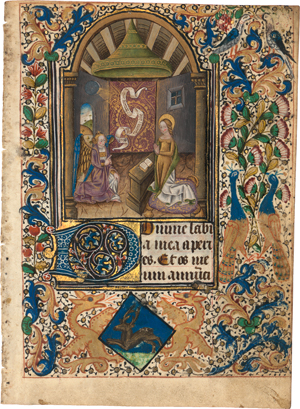 Domine labi
a mea aperi
es. Et os me
um annūci